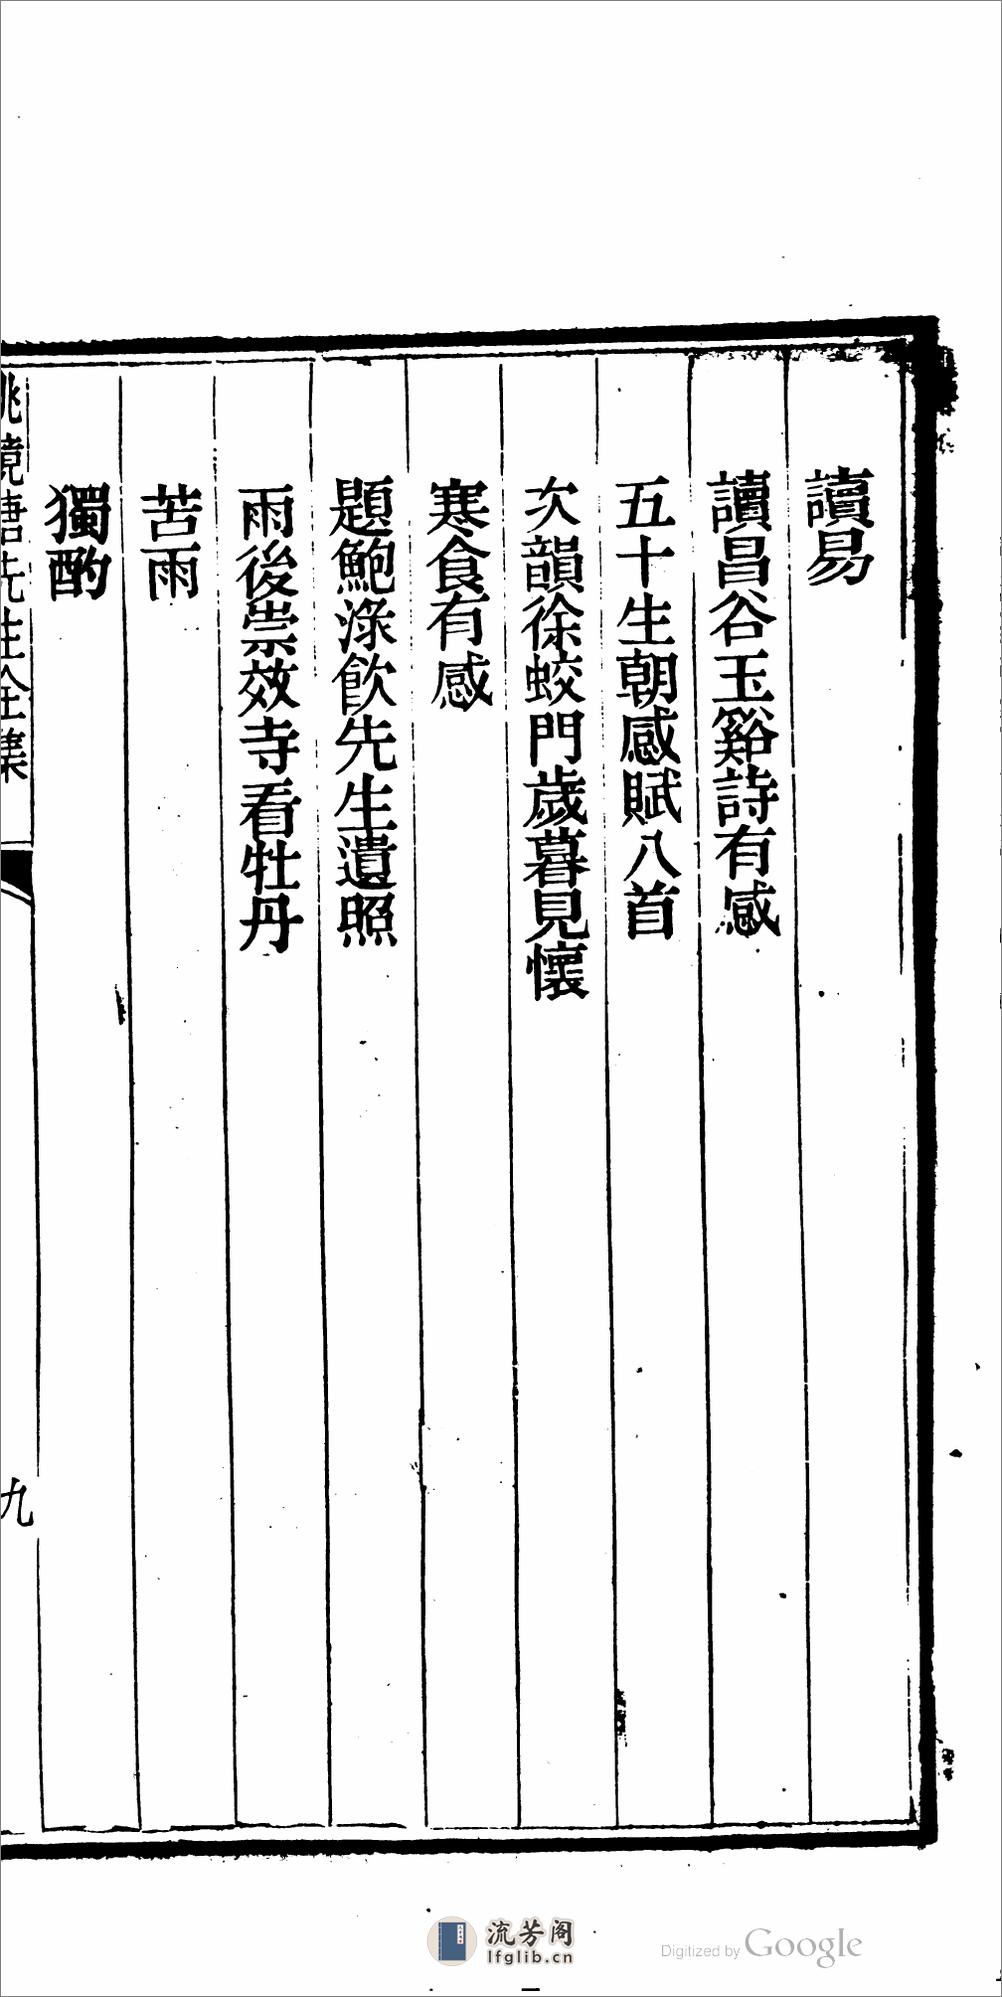 讀易
讀昌谷玉谿詩有感
五十生朝感賦八首
次韻徐蛟門歲暮見懷
寒食有感
題鮑淥飮先生遺照
雨後崇效寺看牡丹
苦雨
獨酌
姚鏡塘先生全集
九
流芳阁
lfglib.cn
Digitized by Google